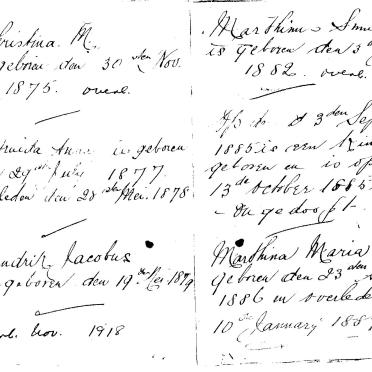 ristina M.
geboren den 30 sten Nov.
1875. overl.
Anna is geboren
29 st July 1877.
leden den 28 ste Mei. 1878
ndrik Jacobus
geboren den 19 de Mei 1879
Nov. 1918
Marthinus
is geboren den 3 d
1882. overl.
Op d 3 den Sep
1885 is een kin
geboren en is op
13 de October 1885
- Ongedoopt -
Marthina Maria
geboren den 23 sten
1886 en overlede
10 de January 188